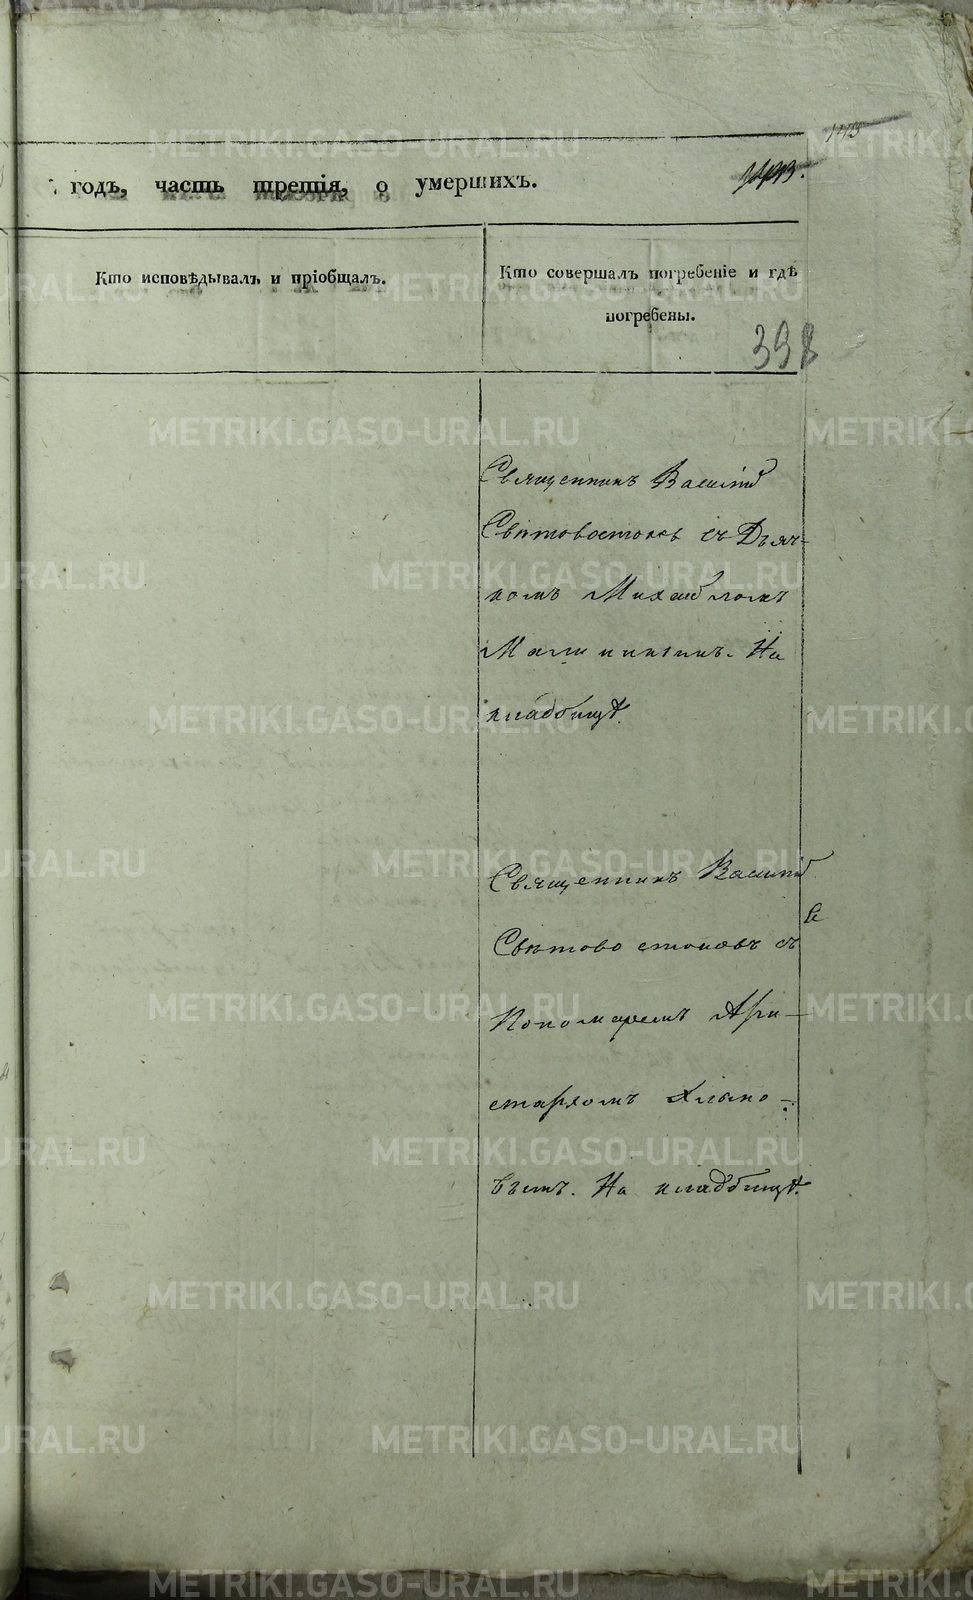 годъ, часть третія, о умершихъ.
Кто исповѣдывалъ и пріобщалъ.
Кто совершалъ погребеніе и гдѣ
погребены.
398
Священникъ Василій
Свѣтовостоковъ съ Дьяч-
комъ Михаиломъ
Малининымъ. На
кладбищѣ.
Священникъ Василій
Свѣтовостоковъ съ
Пономаремъ Ари-
стархомъ Хлыно-
вымъ. На кладбищѣ.
METRIKI.GASO-URAL.RU